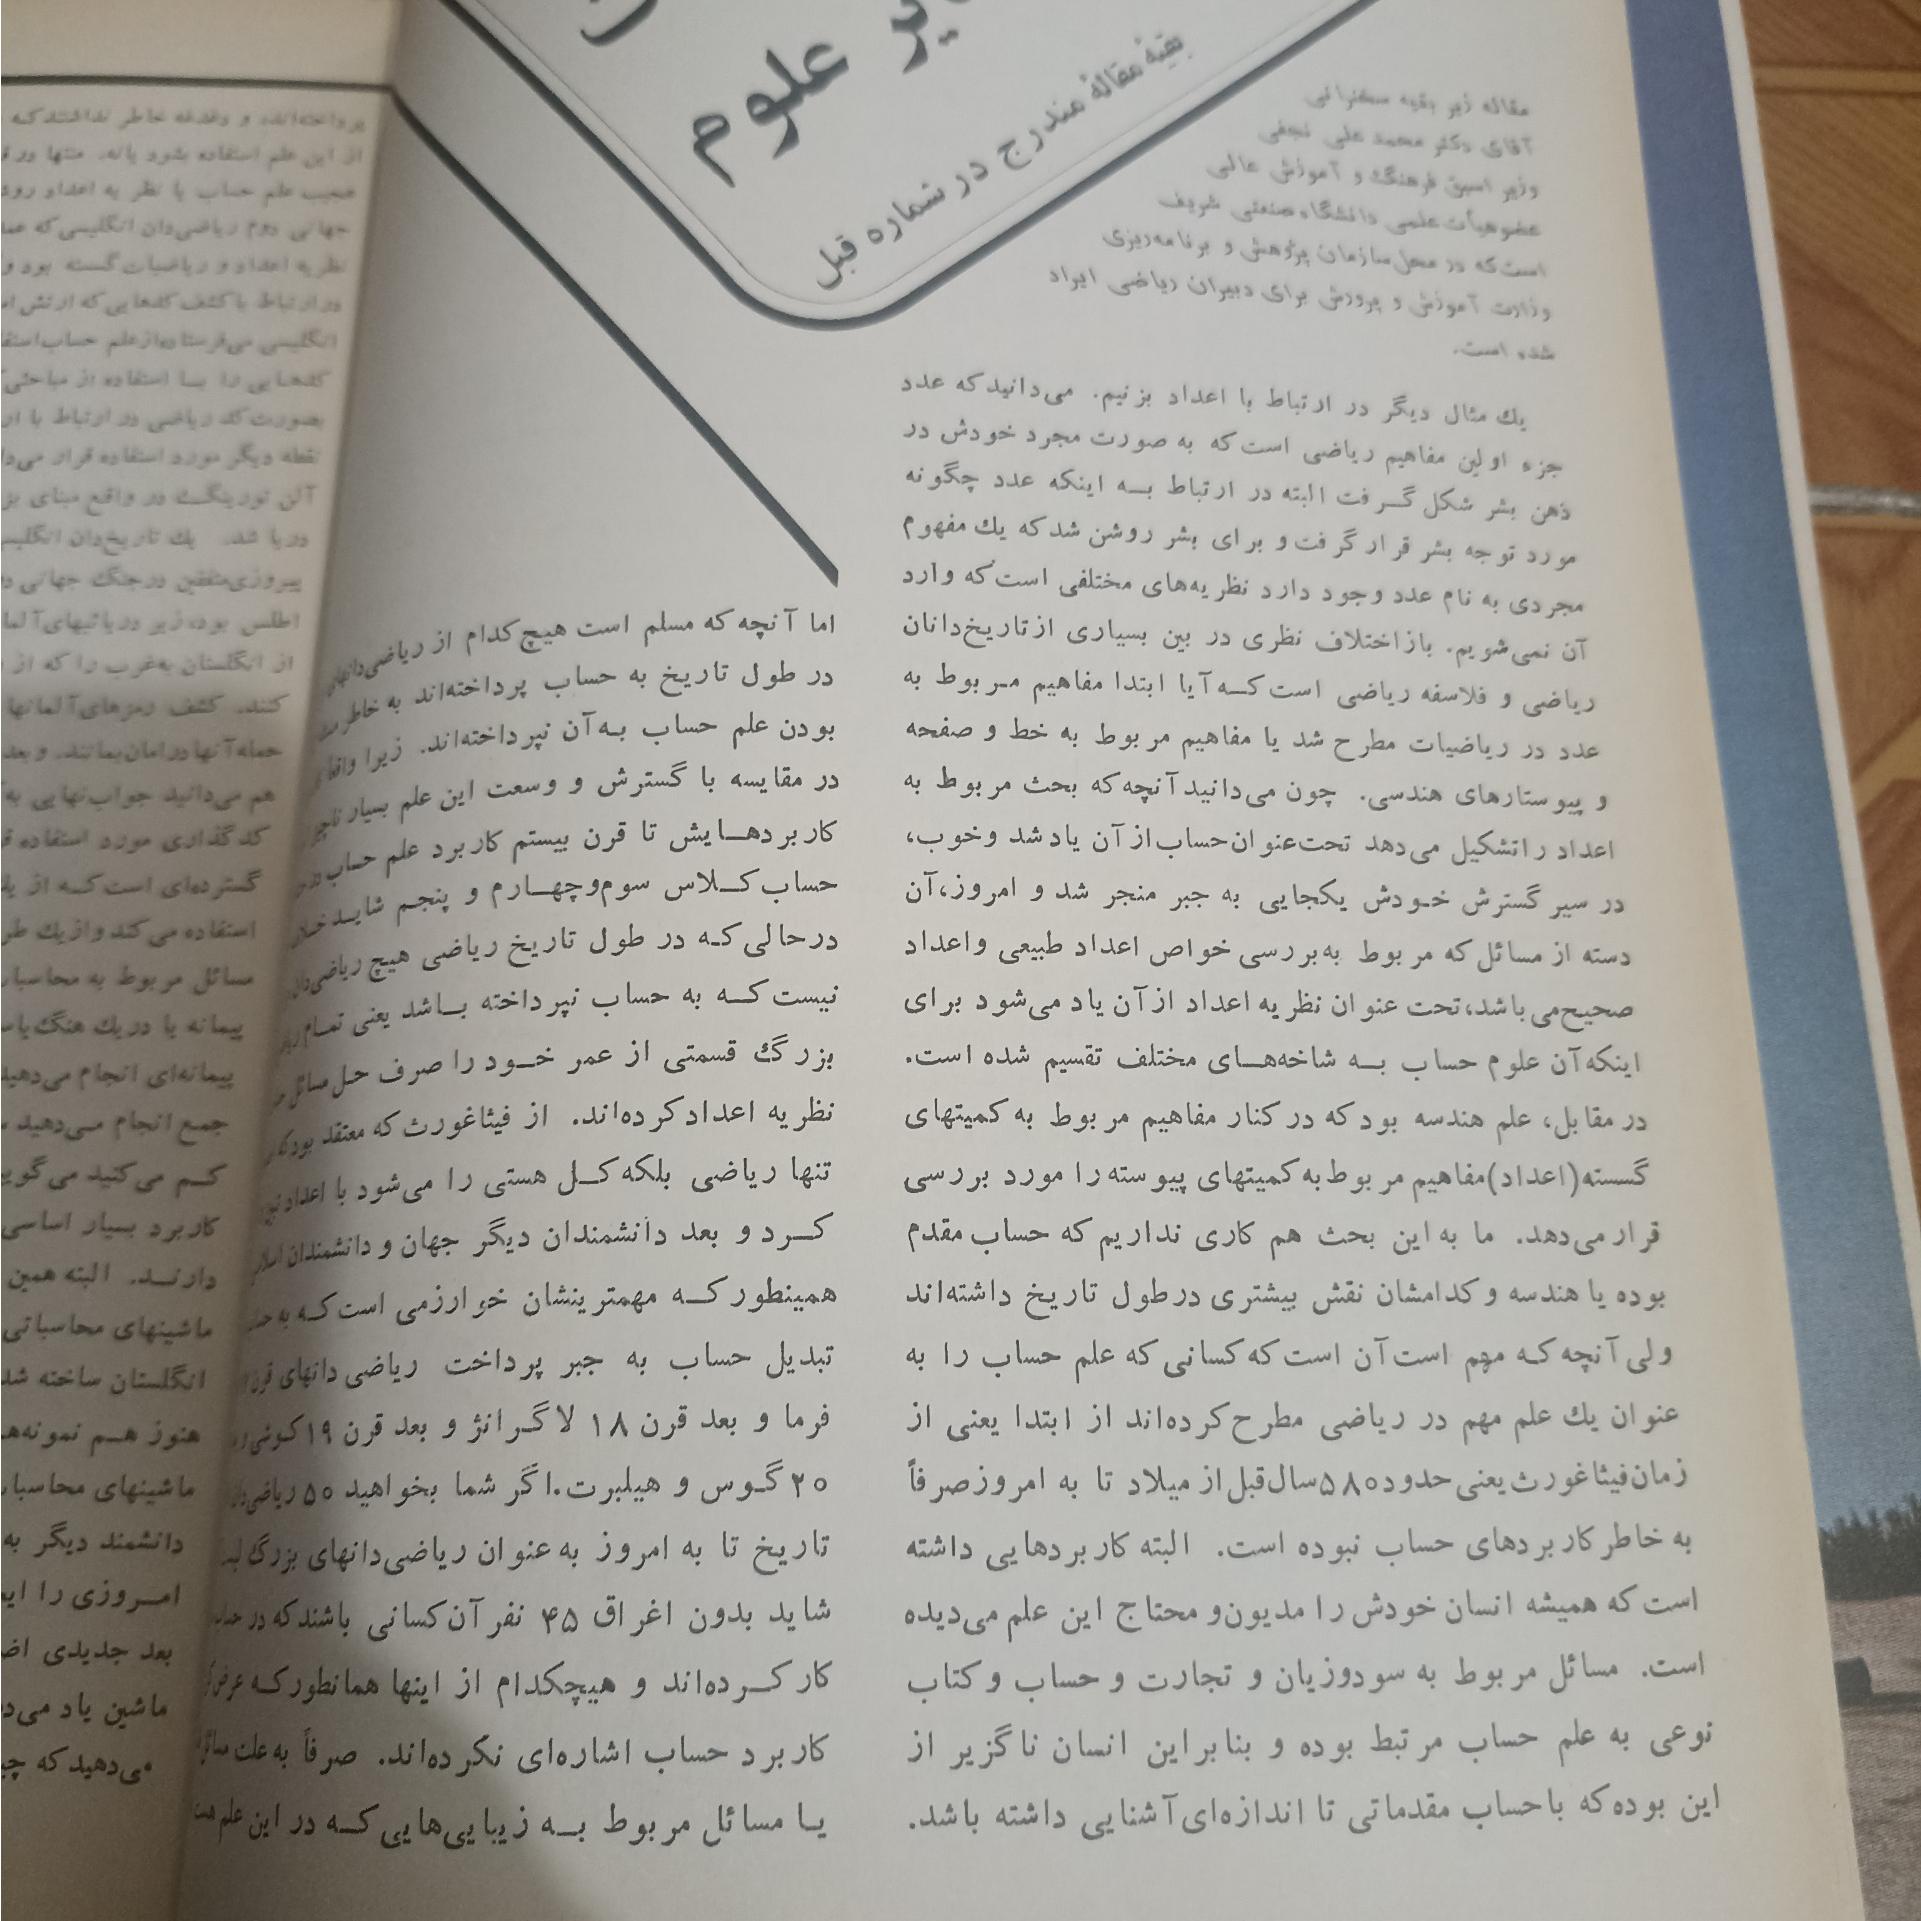 یر علوم
بقیهٔ مقالهٔ مندرج در شماره قبل
مقاله زیر بقیه سخنرانی
آقای دکتر محمد علی نجفی
وزیر اسبق فرهنگ و آموزش عالی
عضو هیأت علمی دانشگاه صنعتی شریف
است که در محل سازمان پژوهش و برنامه‌ریزی
وزارت آموزش و پرورش برای دبیران ریاضی ایراد
شده است.
یك مثال دیگر در ارتباط با اعداد بزنیم. می‌دانید که عدد
جزء اولین مفاهیم ریاضی است که به صورت مجرد خودش در
ذهن بشر شکل گرفت البته در ارتباط به اینکه عدد چگونه
مورد توجه بشر قرار گرفت و برای بشر روشن شد که یك مفهوم
مجردی به نام عدد وجود دارد نظریه‌های مختلفی است که وارد
آن نمی‌شویم. باز اختلاف نظری در بین بسیاری از تاریخ‌دانان
ریاضی و فلاسفه ریاضی است که آیا ابتدا مفاهیم مربوط به
عدد در ریاضیات مطرح شد یا مفاهیم مربوط به خط و صفحه
و پیوستارهای هندسی. چون می‌دانید آنچه که بحث مربوط به
اعداد را تشکیل می‌دهد تحت عنوان حساب از آن یاد شد و خوب،
در سیر گسترش خودش یکجایی به جبر منجر شد و امروز، آن
دسته از مسائل که مربوط به بررسی خواص اعداد طبیعی و اعداد
صحیح می‌باشد، تحت عنوان نظریه اعداد از آن یاد می‌شود برای
اینکه آن علوم حساب به شاخه‌های مختلف تقسیم شده است.
در مقابل، علم هندسه بود که در کنار مفاهیم مربوط به کمیتهای
گسسته (اعداد) مفاهیم مربوط به کمیتهای پیوسته را مورد بررسی
قرار می‌دهد. ما به این بحث هم کاری نداریم که حساب مقدم
بوده یا هندسه و کدامشان نقش بیشتری در طول تاریخ داشته‌اند
ولی آنچه که مهم است آن است که کسانی که علم حساب را به
عنوان یك علم مهم در ریاضی مطرح کرده‌اند از ابتدا یعنی از
زمان فیثاغورث یعنی حدود ۵۸۰ سال قبل از میلاد تا به امروز صرفاً
به خاطر کاربردهای حساب نبوده است. البته کاربردهایی داشته
است که همیشه انسان خودش را مدیون و محتاج این علم می‌دیده
است. مسائل مربوط به سود و زیان و تجارت و حساب و کتاب
نوعی به علم حساب مرتبط بوده و بنابراین انسان ناگزیر از
این بوده که با حساب مقدماتی تا اندازه‌ای آشنایی داشته باشد.
اما آنچه که مسلم است هیچ کدام از ریاضی‌دانهایی
در طول تاریخ به حساب پرداخته‌اند به خاطر
بودن علم حساب به آن نپرداخته‌اند. زیرا واقعاً
در مقایسه با گسترش و وسعت این علم بسیار ناچیز
کاربردهایش تا قرن بیستم کاربرد علم حساب
حساب کلاس سوم و چهارم و پنجم شاید
در حالی که در طول تاریخ ریاضی هیچ ریاضی‌دان
نیست که به حساب نپرداخته باشد یعنی تمام
بزرگ قسمتی از عمر خود را صرف حل مسائل
نظریه اعداد کرده‌اند. از فیثاغورث که معتقد بود که
تنها ریاضی بلکه کل هستی را می‌شود با اعداد
کرد و بعد دانشمندان دیگر جهان و دانشمندان اسلامی
همینطور که مهمترینشان خوارزمی است که به
تبدیل حساب به جبر پرداخت ریاضی دانهای قرن
فرما و بعد قرن ۱۸ لاگرانژ و بعد قرن ۱۹ کوشی و
۲۰ گوس و هیلبرت. اگر شما بخواهید ۵۰ ریاضی‌دان
تاریخ تا به امروز به عنوان ریاضی‌دانهای بزرگ
شاید بدون اغراق ۴۵ نفر آن کسانی باشند که در
کار کرده‌اند و هیچکدام از اینها همانطور که عرض
کاربرد حساب اشاره‌ای نکرده‌اند. صرفاً به علت
یا مسائل مربوط به زیبایی‌هایی که در این علم
پرداخته‌اند و دغدغه خاطر نداشتند که
از این علم استفاده بشود یا نه. منتها در
عجیب علم حساب یا نظریه اعداد
جهانی دوم ریاضی‌دان انگلیسی که
نظریه اعداد و ریاضیات گسسته بود و
در ارتباط با کشف کدهایی که ارتش
انگلیسی می‌فرستاد از علم حساب
کدهایی را با استفاده از مباحثی
بصورت کد ریاضی در ارتباط با
نقطه دیگر مورد استفاده قرار
آلن تورینگ در واقع مبنای
دریا شد. یك تاریخ‌دان
پیروزی متفقین در جنگ جهانی
اطلس بود، زیر دریائیهای
از انگلستان به غرب را که از
کنند. کشف رمزهای آلمانها
حمله آنها در امان بمانند. و بعد
هم می‌دانید جواب نهایی
کدگذاری مورد استفاده
گسترده‌ای است که از
استفاده می‌کند و از یك
مسائل مربوط به
پیمانه یا در یك هنگ
پیمانه‌ای انجام می‌دهید
جمع انجام می‌دهید
کم می‌کنید
کاربرد بسیار اساسی
دارند. البته همین
ماشینهای محاسباتی
انگلستان ساخته
هنوز هم
ماشینهای
دانشمند دیگر به
امروزی را
بعد جدیدی
ماشین یاد
می‌دهید که